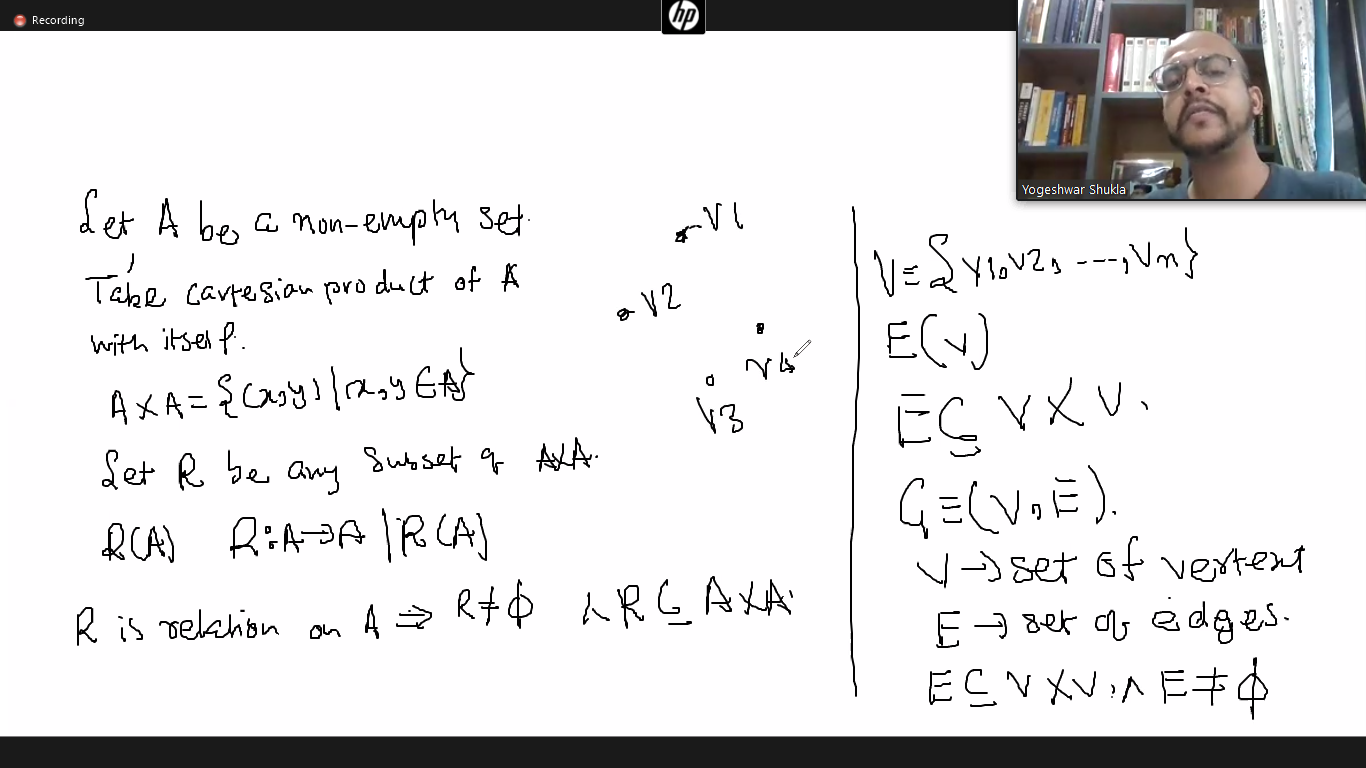 Recording
hp
Yogeshwar Shukla
Let A be a non-empty set.
Take cartesian product of A
with itself.
A×A = {(x,y) | x,y ∈ A}
Let R be any subset of A×A.
R(A) R:A→A | R(A)
R is relation on A ⇒ R ≠ ϕ ∧ R ⊆ A×A.
V1
V2
V4
V3
V = {V1, V2, ----, Vn}
E(V)
E ⊆ V × V.
G ≡ (V, E).
V → set of vertext
E → set of edges.
E ⊆ V × V, ∧ E ≠ ϕ